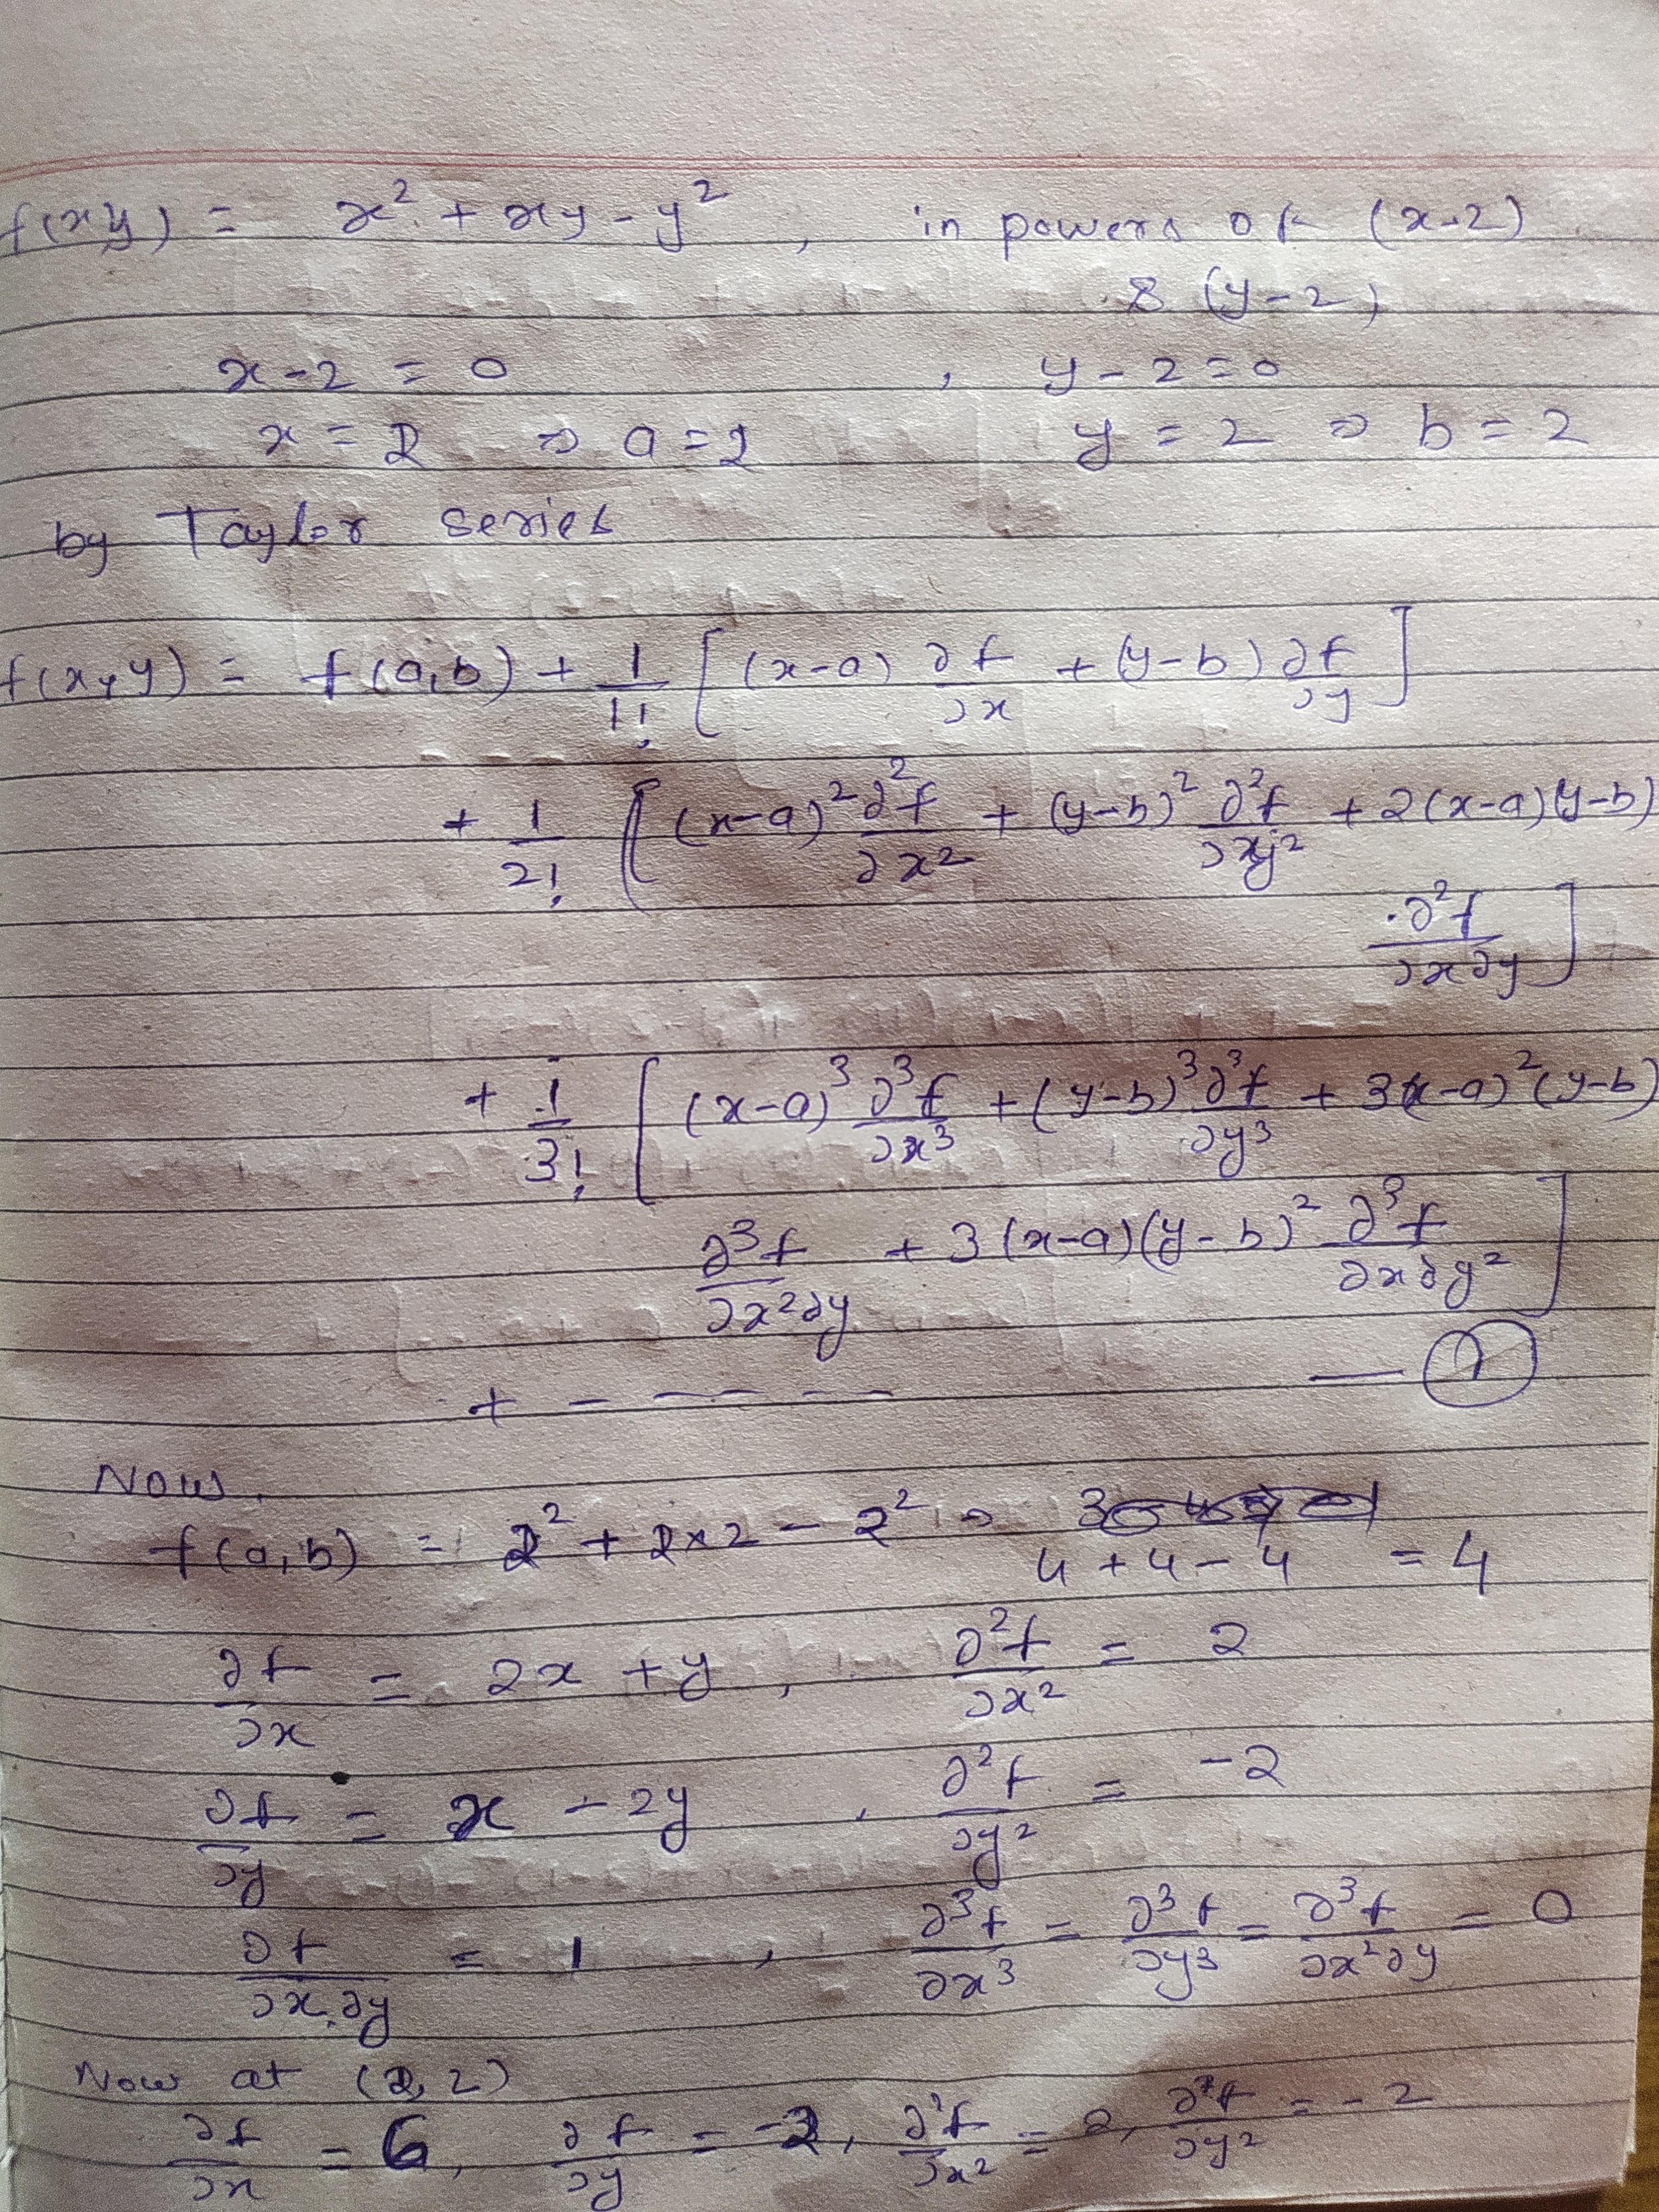 f(x,y) = x² + xy - y² , in powers of (x-2)
& (y-2)
x-2 = 0 , y-2=0
x = 2 ⇒ a=2 y = 2 ⇒ b = 2
by Taylor series
f(x,y) = f(a,b) + 1/1! [ (x-a) ∂f/∂x + (y-b) ∂f/∂y ]
+ 1/2! [ (x-a)² ∂²f/∂x² + (y-b)² ∂²f/∂y² + 2(x-a)(y-b)
· ∂²f/∂x∂y ]
+ 1/3! [ (x-a)³ ∂³f/∂x³ + (y-b)³ ∂³f/∂y³ + 3(x-a)²(y-b)
∂³f/∂x²∂y + 3(x-a)(y-b)² ∂³f/∂x∂y² ]
+ - - - - — ①
Now,
f(a,b) = 2² + 2×2 - 2² ⇒ 4+4-4 = 4
∂f/∂x = 2x + y , ∂²f/∂x² = 2
∂f/∂y = x - 2y , ∂²f/∂y² = -2
∂f/∂x.∂y = 1 , ∂³f/∂x³ = ∂³f/∂y³ = ∂³f/∂x²∂y = 0
Now at (2,2)
∂f/∂x = 6, ∂f/∂y = -2, ∂²f/∂x² = 2, ∂²f/∂y² = -2